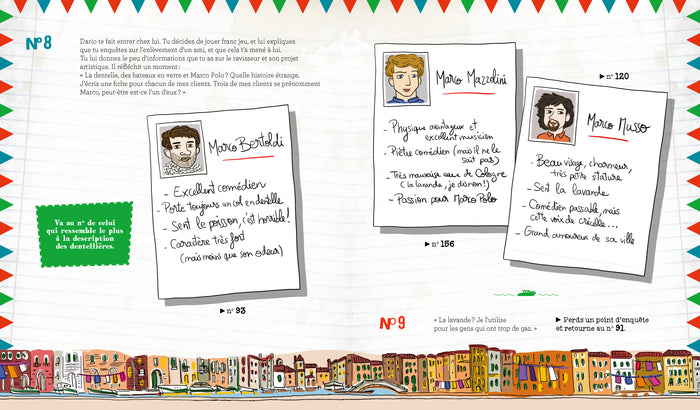 N°8
Dario te fait entrer chez lui. Tu décides de jouer franc jeu, et lui expliques
que tu enquêtes sur l'enlèvement d'un ami, et que cela t'a mené à lui.
Tu lui donnes le peu d'informations que tu as sur le ravisseur et son projet
artistique. Il réfléchit un moment :
« La dentelle, des bateaux en verre et Marco Polo ? Quelle histoire étrange.
J'écris une fiche pour chacun de mes clients. Trois de mes clients se prénomment
Marco, peut-être est-ce l'un d'eux ? »
Va au n° de celui
qui ressemble le plus
à la description
des dentellières.
Marco Bertoldi
- Excellent comédien
- Porte toujours un col en dentelle
- Sent le poisson, c'est horrible !
- Caractère très fort
(mais moins que son odeur)
▶ n° 93
Marco Mazzolini
- Physique avantageux et
excellent musicien
- Piètre comédien (mais il ne le
sait pas)
- Très mauvaise eau de Cologne
(la lavande, je dis non !)
- Passion pour Marco Polo
▶ n° 156
▶ n° 120
Marco Musso
- Beau visage, charmeur,
très petite stature
- Sent la lavande
- Comédien passable, mais
cette voix de crécelle...
- Grand amoureux de sa ville
N°9
« La lavande ? Je l'utilise
pour les gens qui ont trop de gaz. »
▶ Perds un point d'enquête
et retourne au n° 91.